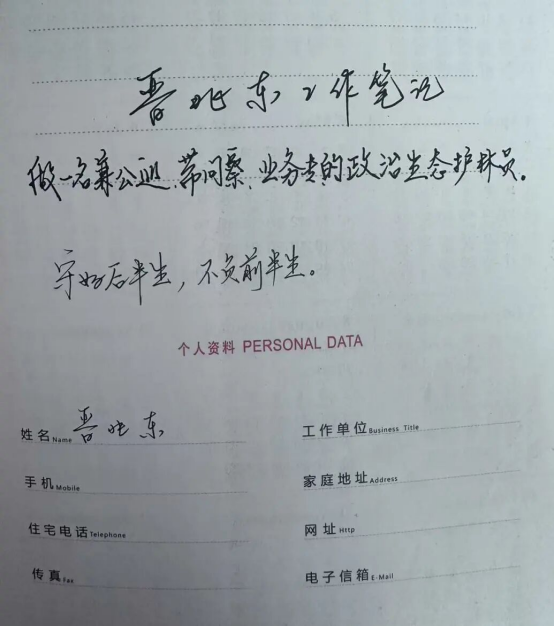 晋北东工作笔记
做一名兼公巡、带问案、业务专的政治生态护林员。
守好后半生，不负前半生。
个人资料 PERSONAL DATA
姓名 Name 晋北东
工作单位 Business Title
手机 Mobile
家庭地址 Address
住宅电话 Telephone
网址 Http
传真 Fax
电子信箱 E-Mail